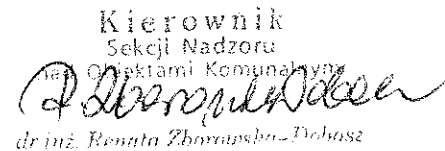 Kierownik
Sekcji Nadzoru
nad Obiektami Komunalnymi
dr inż. Renata Zborowska-Dobosz